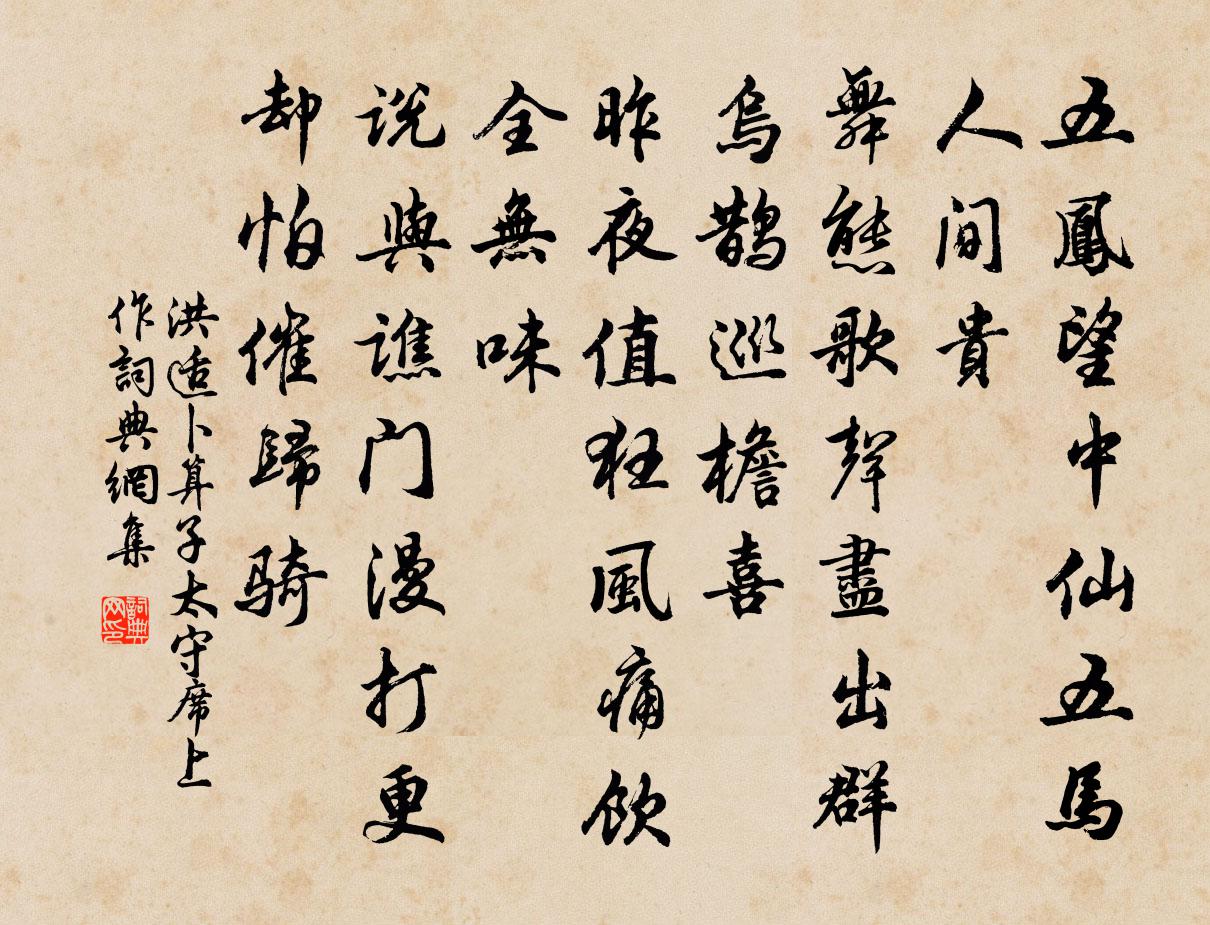 五鳳望中仙五馬
人间貴
舞態歌聲盡出群
烏鵲巡檐喜
昨夜值狂風痛飲
全無味
説與譙门漫打更
却怕催歸騎
洪适卜算子太守席上
作詞典網集
詞典
网印